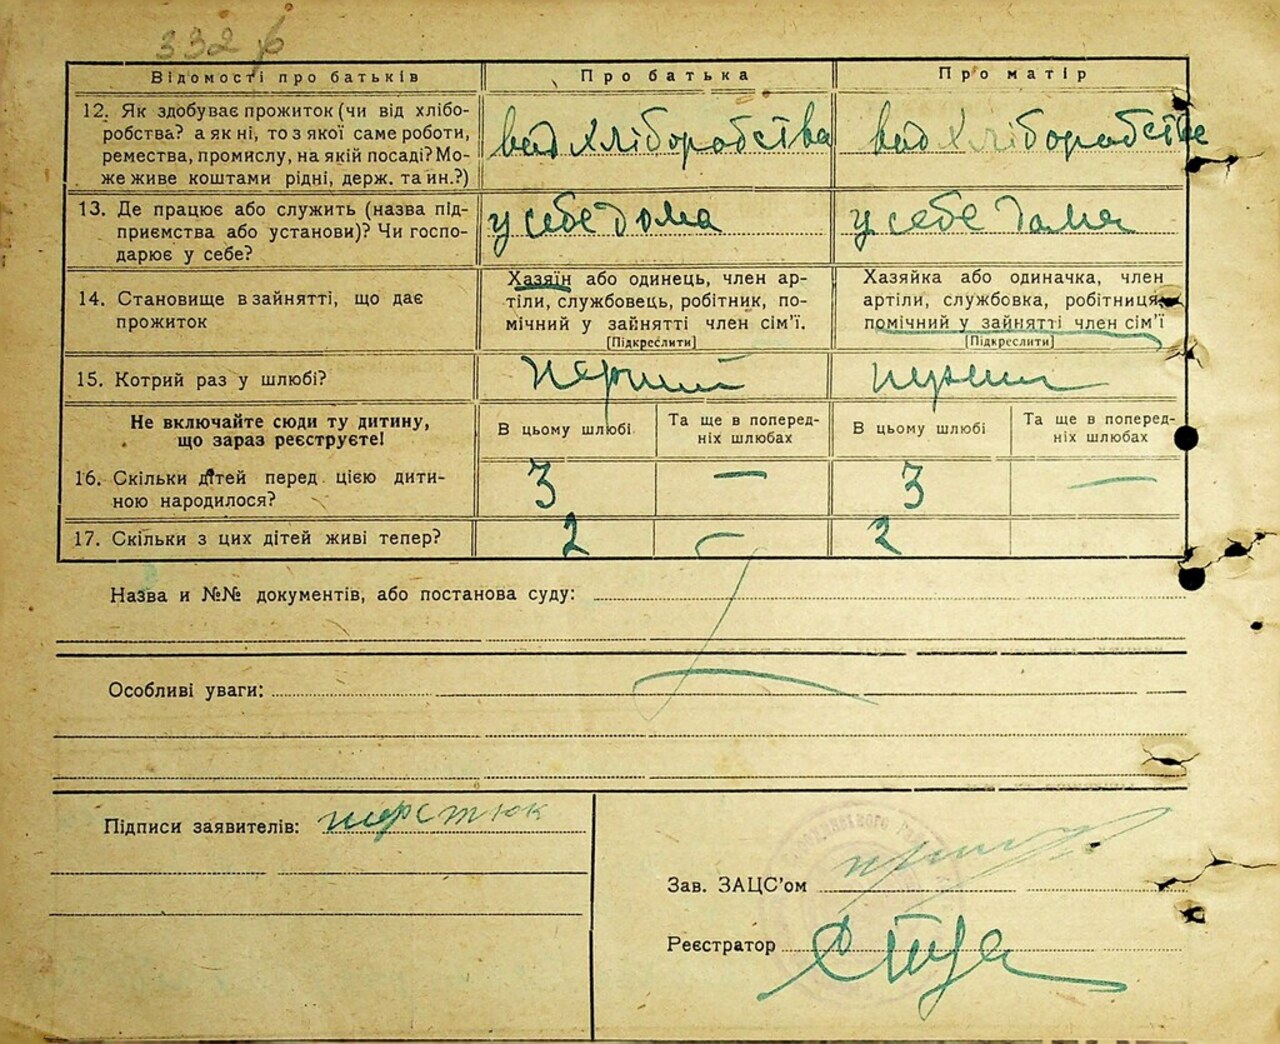 332
Відомості про батьків Про батька Про матір
12. Як здобуває прожиток (чи від хлібо-
робства? а як ні, то з якої саме роботи,
ремества, промислу, на якій посаді? Мо-
же живе коштами рідні, держ. та ин.?)
вид хліборобства
вид хліборобства
13. Де працює або служить (назва під-
приємства або установи)? Чи госпо-
дарює у себе?
у себе дома
у себе дома
14. Становище в зайнятті, що дає
прожиток
Хазяїн або одинець, член ар-
тіли, службовець, робітник, по-
мічний у зайнятті член сім'ї.
[Підкреслити]
Хазяйка або одиначка, член
артіли, службовка, робітниця,
помічний у зайнятті член сім'ї
[Підкреслити]
15. Котрий раз у шлюбі?
перший
перший
Не включайте сюди ту дитину,
що зараз реєструєте!
В цьому шлюбі
Та ще в поперед-
ніх шлюбах
В цьому шлюбі
Та ще в поперед-
ніх шлюбах
16. Скільки дітей перед цією дити-
ною народилося?
3 — 3 —
17. Скільки з цих дітей живі тепер?
2 — 2
Назва и №№ документів, або постанова суду:
Особливі уваги:
Підписи заявителів:
Зав. ЗАЦС'ом
Реєстратор